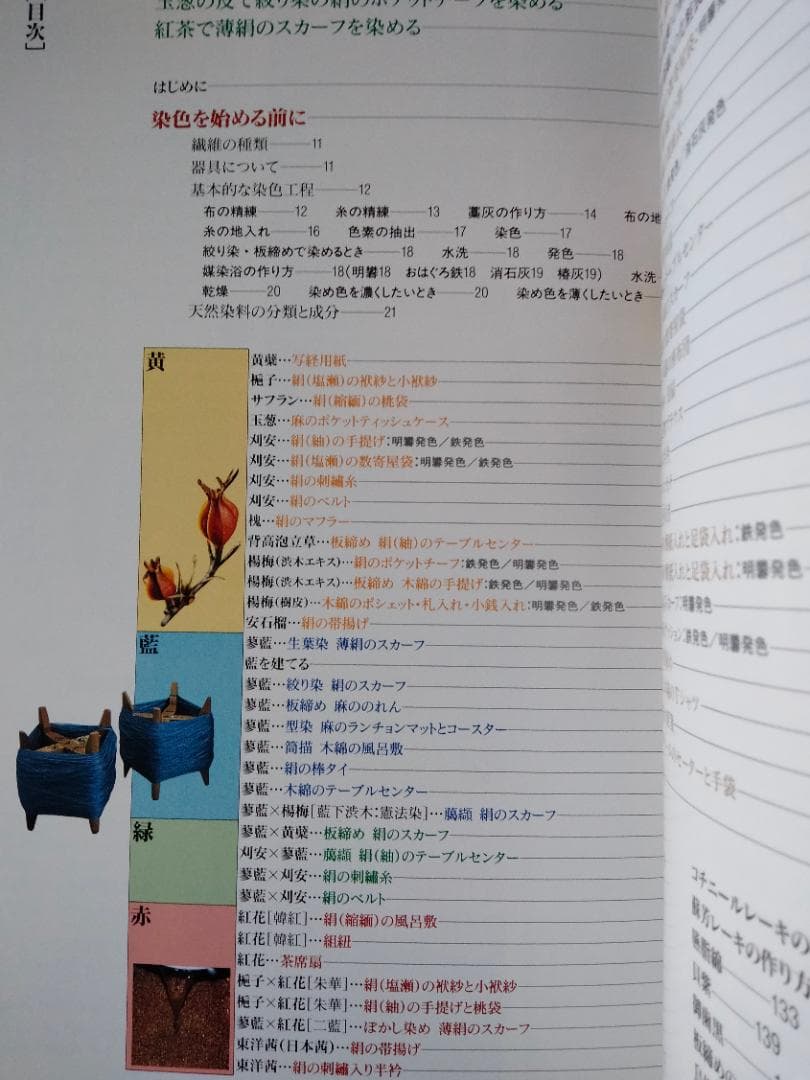 [目次]
玉葱の皮で絞り染の絹のポケットチーフを染める
紅茶で薄絹のスカーフを染める
はじめに
染色を始める前に
繊維の種類――11
器具について――11
基本的な染色工程――12
布の精練――12 糸の精練――13 藁灰の作り方――14 布の地
糸の地入れ――16 色素の抽出――17 染色――17
絞り染・板締めで染めるとき――18 水洗――18 発色――18
媒染浴の作り方――18(明礬18 おはぐろ鉄18 消石灰19 椿灰19) 水洗
乾燥――20 染め色を濃くしたいとき――20 染め色を薄くしたいとき――
天然染料の分類と成分――21
黄
黄蘗…写経用紙
梔子…絹(塩瀬)の袱紗と小袱紗
サフラン…絹(縮緬)の桃袋
玉葱…麻のポケットティッシュケース
刈安…絹(紬)の手提げ:明礬発色/鉄発色
刈安…絹(塩瀬)の数寄屋袋:明礬発色/鉄発色
刈安…絹の刺繡糸
刈安…絹のベルト
槐…絹のマフラー
背高泡立草…板締め 絹(紬)のテーブルセンター
楊梅(渋木エキス)…絹のポケットチーフ:鉄発色/明礬発色
楊梅(渋木エキス)…板締め 木綿の手提げ:鉄発色/明礬発色
楊梅(樹皮)…木綿のポシェット・札入れ・小銭入れ:明礬発色/鉄発色
安石榴…絹の帯揚げ
藍
蓼藍…生葉染 薄絹のスカーフ
藍を建てる
蓼藍…絞り染 絹のスカーフ
蓼藍…板締め 麻ののれん
蓼藍…型染 麻のランチョンマットとコースター
蓼藍…筒描 木綿の風呂敷
蓼藍…絹の棒タイ
蓼藍…木綿のテーブルセンター
蓼藍×楊梅[藍下渋木:憲法染]…﨟纈 絹のスカーフ
緑
蓼藍×黄蘗…板締め 絹のスカーフ
刈安×蓼藍…﨟纈 絹(紬)のテーブルセンター
蓼藍×刈安…絹の刺繡糸
蓼藍×刈安…絹のベルト
赤
紅花[韓紅]…絹(縮緬)の風呂敷
紅花[韓紅]…組紐
紅花…茶席扇
梔子×紅花[朱華]…絹(塩瀬)の袱紗と小袱紗
梔子×紅花[朱華]…絹(紬)の手提げと桃袋
蓼藍×紅花[二藍]…ぼかし染め 薄絹のスカーフ
東洋茜(日本茜)…絹の帯揚げ
東洋茜…絹の刺繡入り半衿
消石灰発色
ブルセンター
入れと足袋入れ:鉄発色
入れと足袋入れ:明礬発色
明礬発色
鉄発色/明礬発色
シャツ
セーターと手袋
コチニールレーキの
蘇芳レーキの作り方
臙脂綿――133
貝紫――139